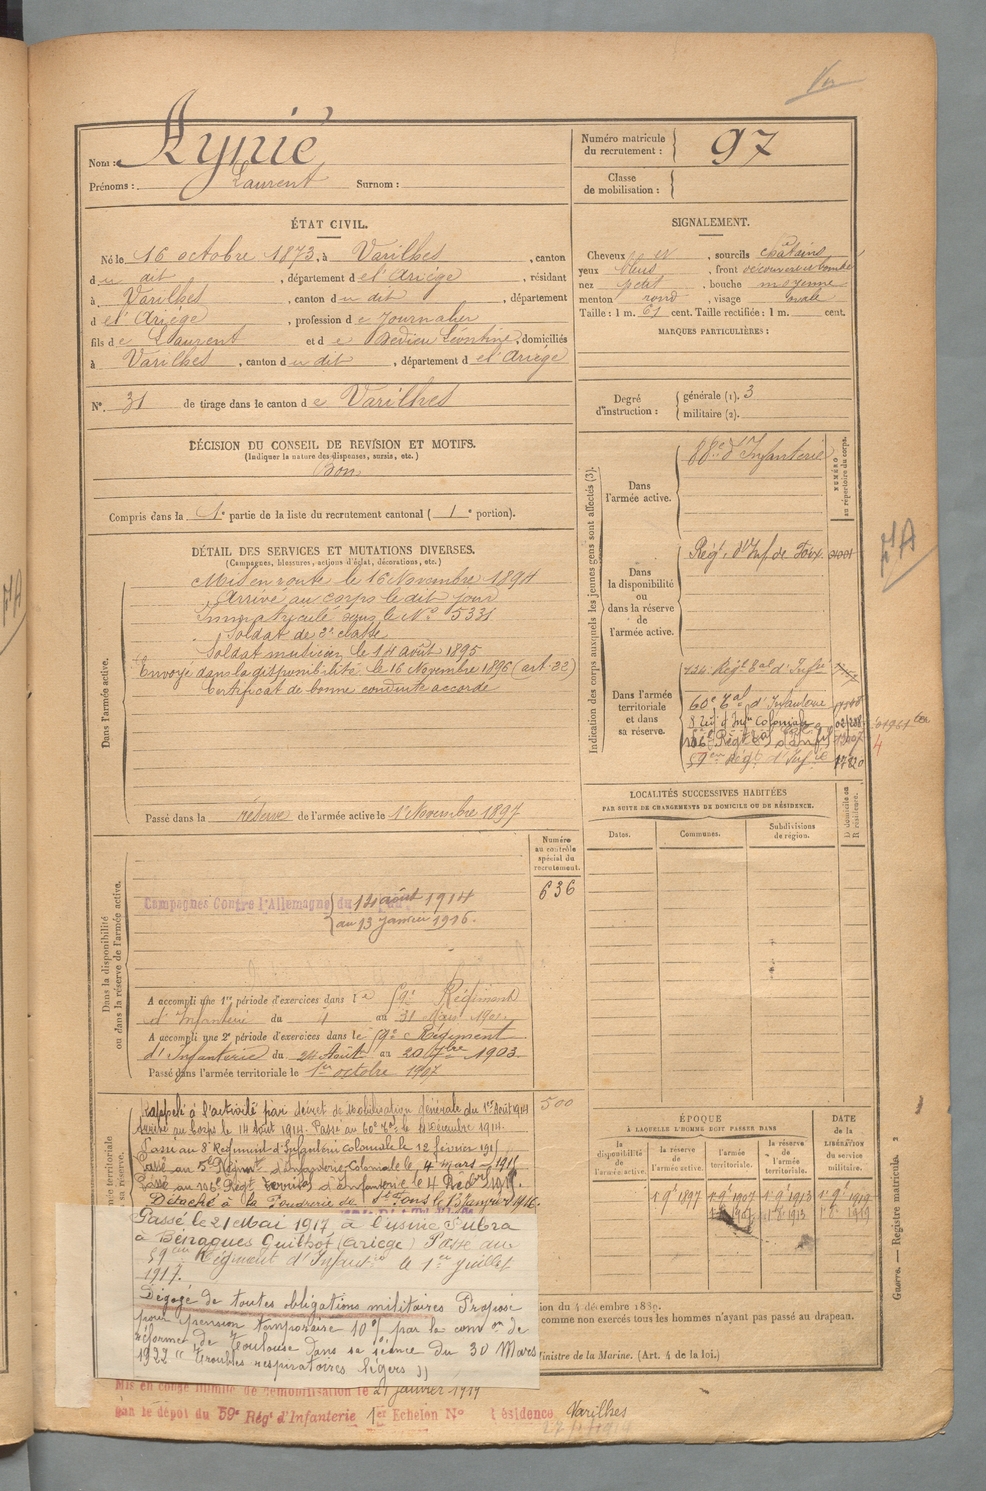 Nom : Aynié
Prénoms : Laurent Surnom :
Numéro matricule du recrutement : 97
Classe de mobilisation :
ÉTAT CIVIL.
Né le 16 octobre 1873, à Varilhes, canton
du dit, département de l'Ariège, résidant
à Varilhes, canton du dit, département
de l'Ariège, profession de Journalier
fils de Laurent et de Dedieu Léontine, domiciliés
à Varilhes, canton du dit, département de l'Ariège
N° 31 de tirage dans le canton de Varilhes
SIGNALEMENT.
Cheveux et, sourcils châtains
yeux bleus, front découvert et bombé
nez petit, bouche moyenne
menton rond, visage ovale
Taille : 1 m. 61 cent. Taille rectifiée : 1 m. cent.
MARQUES PARTICULIÈRES :
Degré d'instruction : générale (1). 3
militaire (2).
DÉCISION DU CONSEIL DE REVISION ET MOTIFS.
(Indiquer la nature des dispenses, sursis, etc.)
Bon
Compris dans la 1e partie de la liste du recrutement cantonal ( 1e portion).
DÉTAIL DES SERVICES ET MUTATIONS DIVERSES.
(Campagnes, blessures, actions d'éclat, décorations, etc.)
Dans l'armée active.
Mis en route le 16 Novembre 1894
Arrivé au corps le dit jour
Immatriculé sous le N° 5331
Soldat de 2e classe
Soldat musicien le 14 août 1895
Envoyé dans la disponibilité le 16 Novembre 1896 (art. 22)
Certificat de bonne conduite accordé
Passé dans la réserve de l'armée active le 1er Novembre 1897
Indication des corps auxquels les jeunes gens sont affectés (3).
NUMÉRO au répertoire du corps.
Dans l'armée active.
88e d'Infanterie
Dans la disponibilité ou dans la réserve de l'armée active.
Rég. d'Inf de Foix
Dans l'armée territoriale et dans sa réserve.
134e Régt Eal d'Infie
60e Eal d'Infanterie
8 Rei d'Infie Coloniale
59eme Régt d'Infie
4
LOCALITÉS SUCCESSIVES HABITÉES
PAR SUITE DE CHANGEMENTS DE DOMICILE OU DE RÉSIDENCE.
Dates. Communes. Subdivisions de région. D domicile ou R résidence.
Dans la disponibilité ou dans la réserve de l'armée active.
Numéro au contrôle spécial du recrutement.
636
Campagnes Contre l'Allemagne du 14 août 1914
au 13 janvier 1916.
A accompli une 1re période d'exercices dans le 59e Régiment
d'Infanterie du 4 au 31 Mars
A accompli une 2e période d'exercices dans le 59e Régiment
d'Infanterie du 24 Août au 20 7bre 1903
Passé dans l'armée territoriale le 1er octobre 1907
Rappelé à l'activité par décret de Mobilisation générale du 1er Août 1914
500
Arrivé au Corps le 14 Août 1914. Passé au 60e Eal le 11 Décembre 1914.
Passé au 8e Régiment d'Infanterie coloniale le 12 février 1915
Passé au 5e Régiment d'Infanterie Coloniale le 4 mars 1915
Détaché à la Poudrerie de St Fons le 13 Janvier 1916.
Passé le 21 Mai 1917 à l'usine Fubra
à Bénagues Guilhot (Ariège) Passé au
59eme Régiment d'Infanterie le 1er juillet
1917.
Dégagé de toutes obligations militaires Proposé
pour pension temporaire 10% par la comon de
réforme de Toulouse dans sa séance du 30 Mars
1922 "troubles respiratoires légers"
ÉPOQUE
À LAQUELLE L'HOMME DOIT PASSER DANS
la disponibilité de l'armée active. la réserve de l'armée active. l'armée territoriale. la réserve de l'armée territoriale.
DATE de la LIBÉRATION du service militaire.
1 9e 1897 1 9e 1907 1 9e 1913 1 9e 1919
ion du 4 décembre 1889.
comme non exercés tous les hommes n'ayant pas passé au drapeau.
inistre de la Marine. (Art. 4 de la loi.)
Guerre. — Registre matricule. 2
Mis en congé illimité de démobilisation le 21 janvier 1919
par le dépôt du 59e Rég' d'Infanterie 1er Echelon N° résidence Varilhes